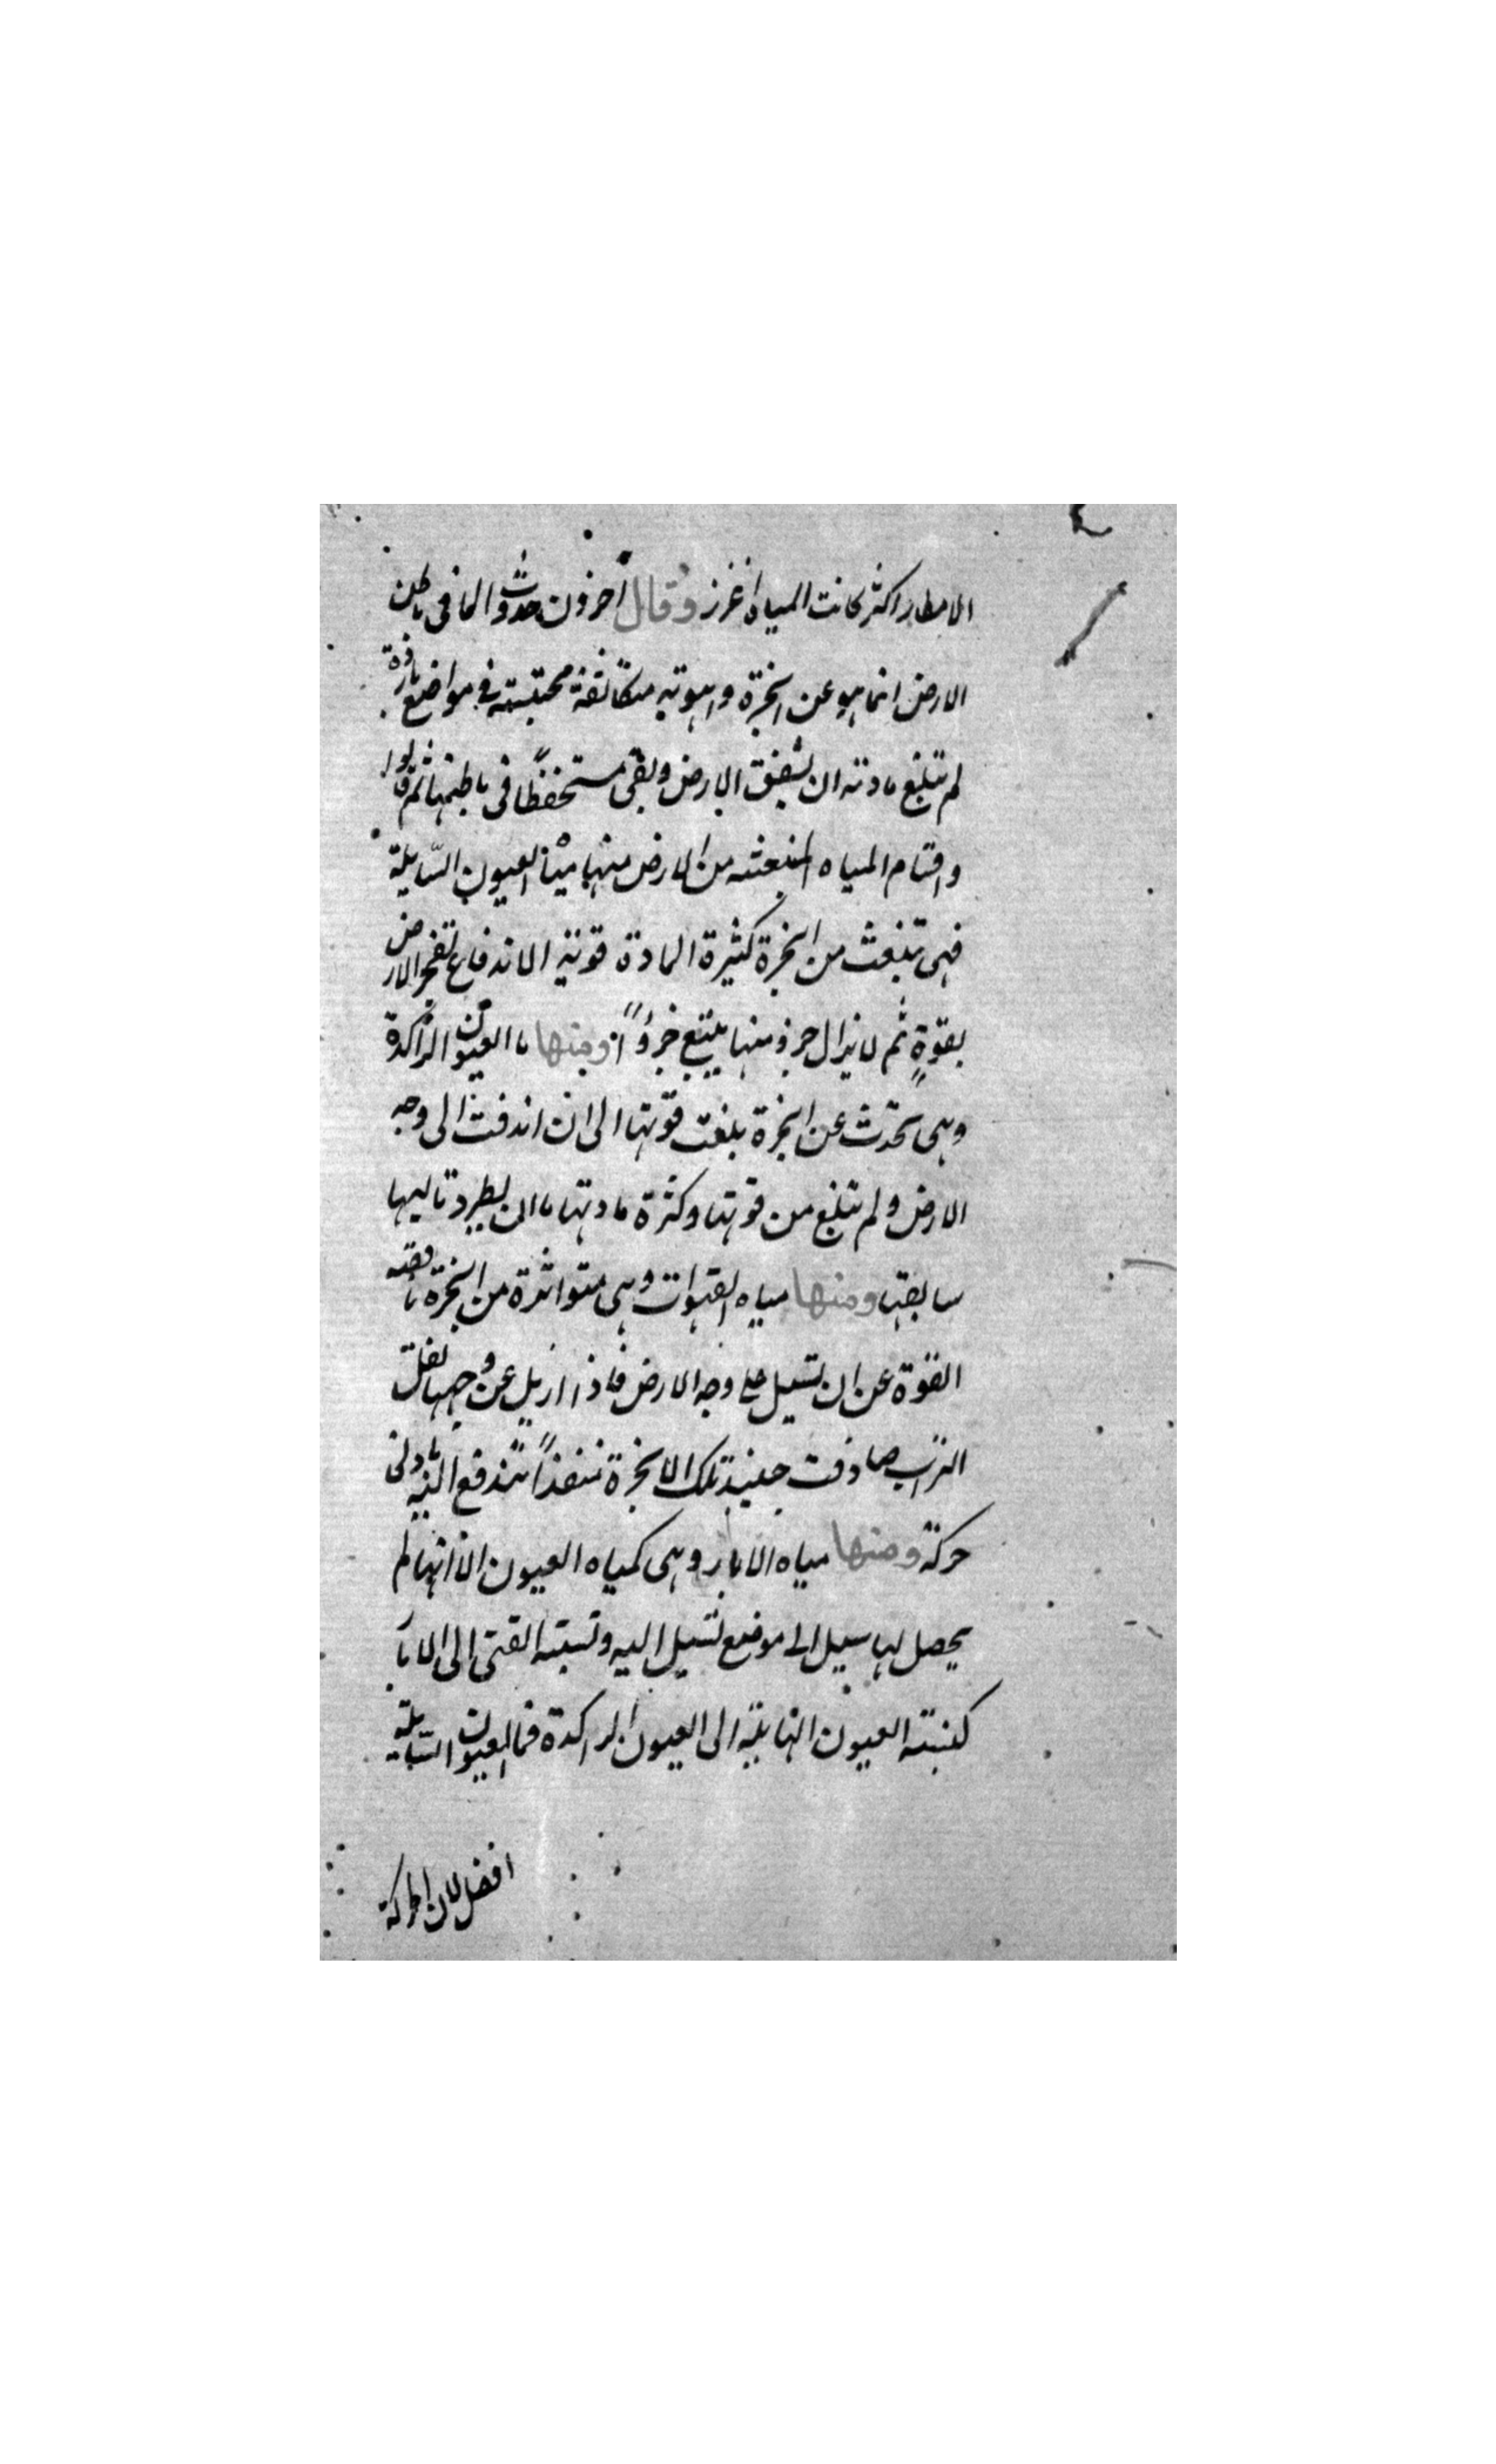 الامطار اكثر كانت المياه اغزر وقال آخرون حدوث الما فى باطن
الارض انما هو عن ابخرة واهوته متكاثفة محتبسته فى مواضع بارزة
لم تبلغ مادته ان يشقق الارض وبقى مستحفظًا فى باطنها ثم قالوا
واقسام المياه المنبعثه من الارض منها مياه العيون السّايلة
فهى تنبعث من ابخرة كثيرة المادة قوية الاندفاع تفجر الارض
بقوةٍ ثم لا يزال جزؤ منها يتبع جزؤًا ومنها ما العيون الراكدة
وهى تحدث عن ابخرة بلغت قوتها الى ان اندفت الى وجه
الارض ولم تبلغ من قوتها وكثرة مادتها ما ان يطرد تاليها
سابقها ومنها مياه القنوات وهى متواثرة من ابخرة ناقصه
القوة عن ان تسيل على وجه الارض فاذا ازيل عن وجهها ثقل
التراب صادفت حينيذ تلك الابخرة منفذًا تندفع اليه بادنى
حركة ومنها مياه الابار وهى كمياه العيون الا انها لم
يحصل لها سبيل الى موضع تسيل اليه ونسبته القنى الى الابا
كنسبته العيون السايلة الى العيون الراكدة فما العيون السّايلة
افضل لان الحركة